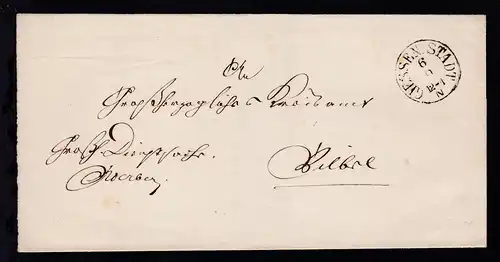 GIESSEN STADT
6
9
12-1
N
An
Großherzogliches Kreisamt
Großh. Dienstsache.
Vilbel